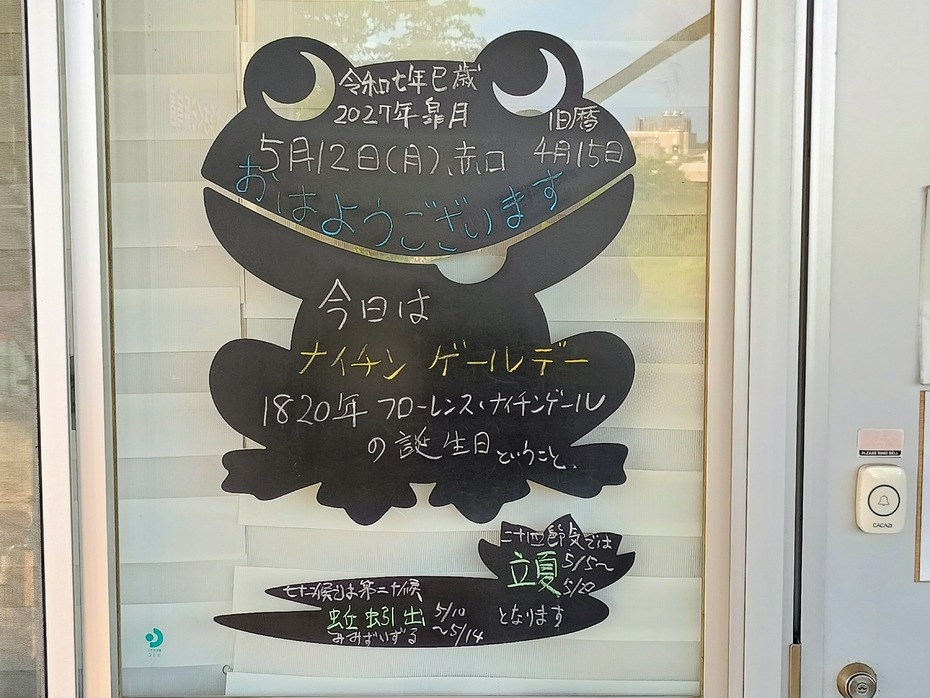 令和七年巳歳
2027年皐月
旧暦
5月12日(月)、赤口
4月15日
おはようございます
今日は
ナイチンゲールデー
1820年 フローレンス・ナイチンゲール
の誕生日ということ、
二十四節気では
立夏 5/5〜
5/20
七十二候では第二十候
蚯蚓出 5/10
〜5/14
みみずいずる
となります
PLEASE RING BELL
CACAZI